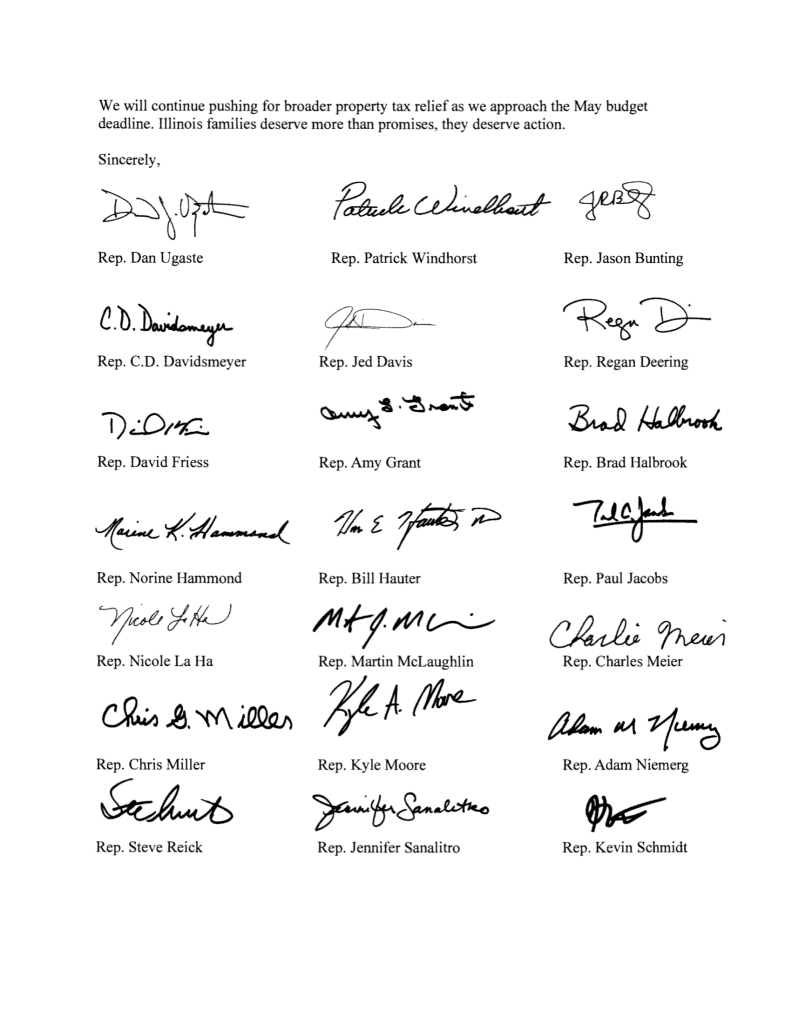 We will continue pushing for broader property tax relief as we approach the May budget
deadline. Illinois families deserve more than promises, they deserve action.
Sincerely,
Rep. Dan Ugaste Rep. Patrick Windhorst Rep. Jason Bunting
C.D. Davidsmeyer
Rep. C.D. Davidsmeyer Rep. Jed Davis Rep. Regan Deering
Amy L. Grant Brad Halbrook
Rep. David Friess Rep. Amy Grant Rep. Brad Halbrook
Rep. Norine Hammond Rep. Bill Hauter Rep. Paul Jacobs
Nicole La Ha Charlie Meier
Rep. Nicole La Ha Rep. Martin McLaughlin Rep. Charles Meier
Chris G. Miller Kyle A. Moore
Rep. Chris Miller Rep. Kyle Moore Rep. Adam Niemerg
Jennifer Sanalitro
Rep. Steve Reick Rep. Jennifer Sanalitro Rep. Kevin Schmidt